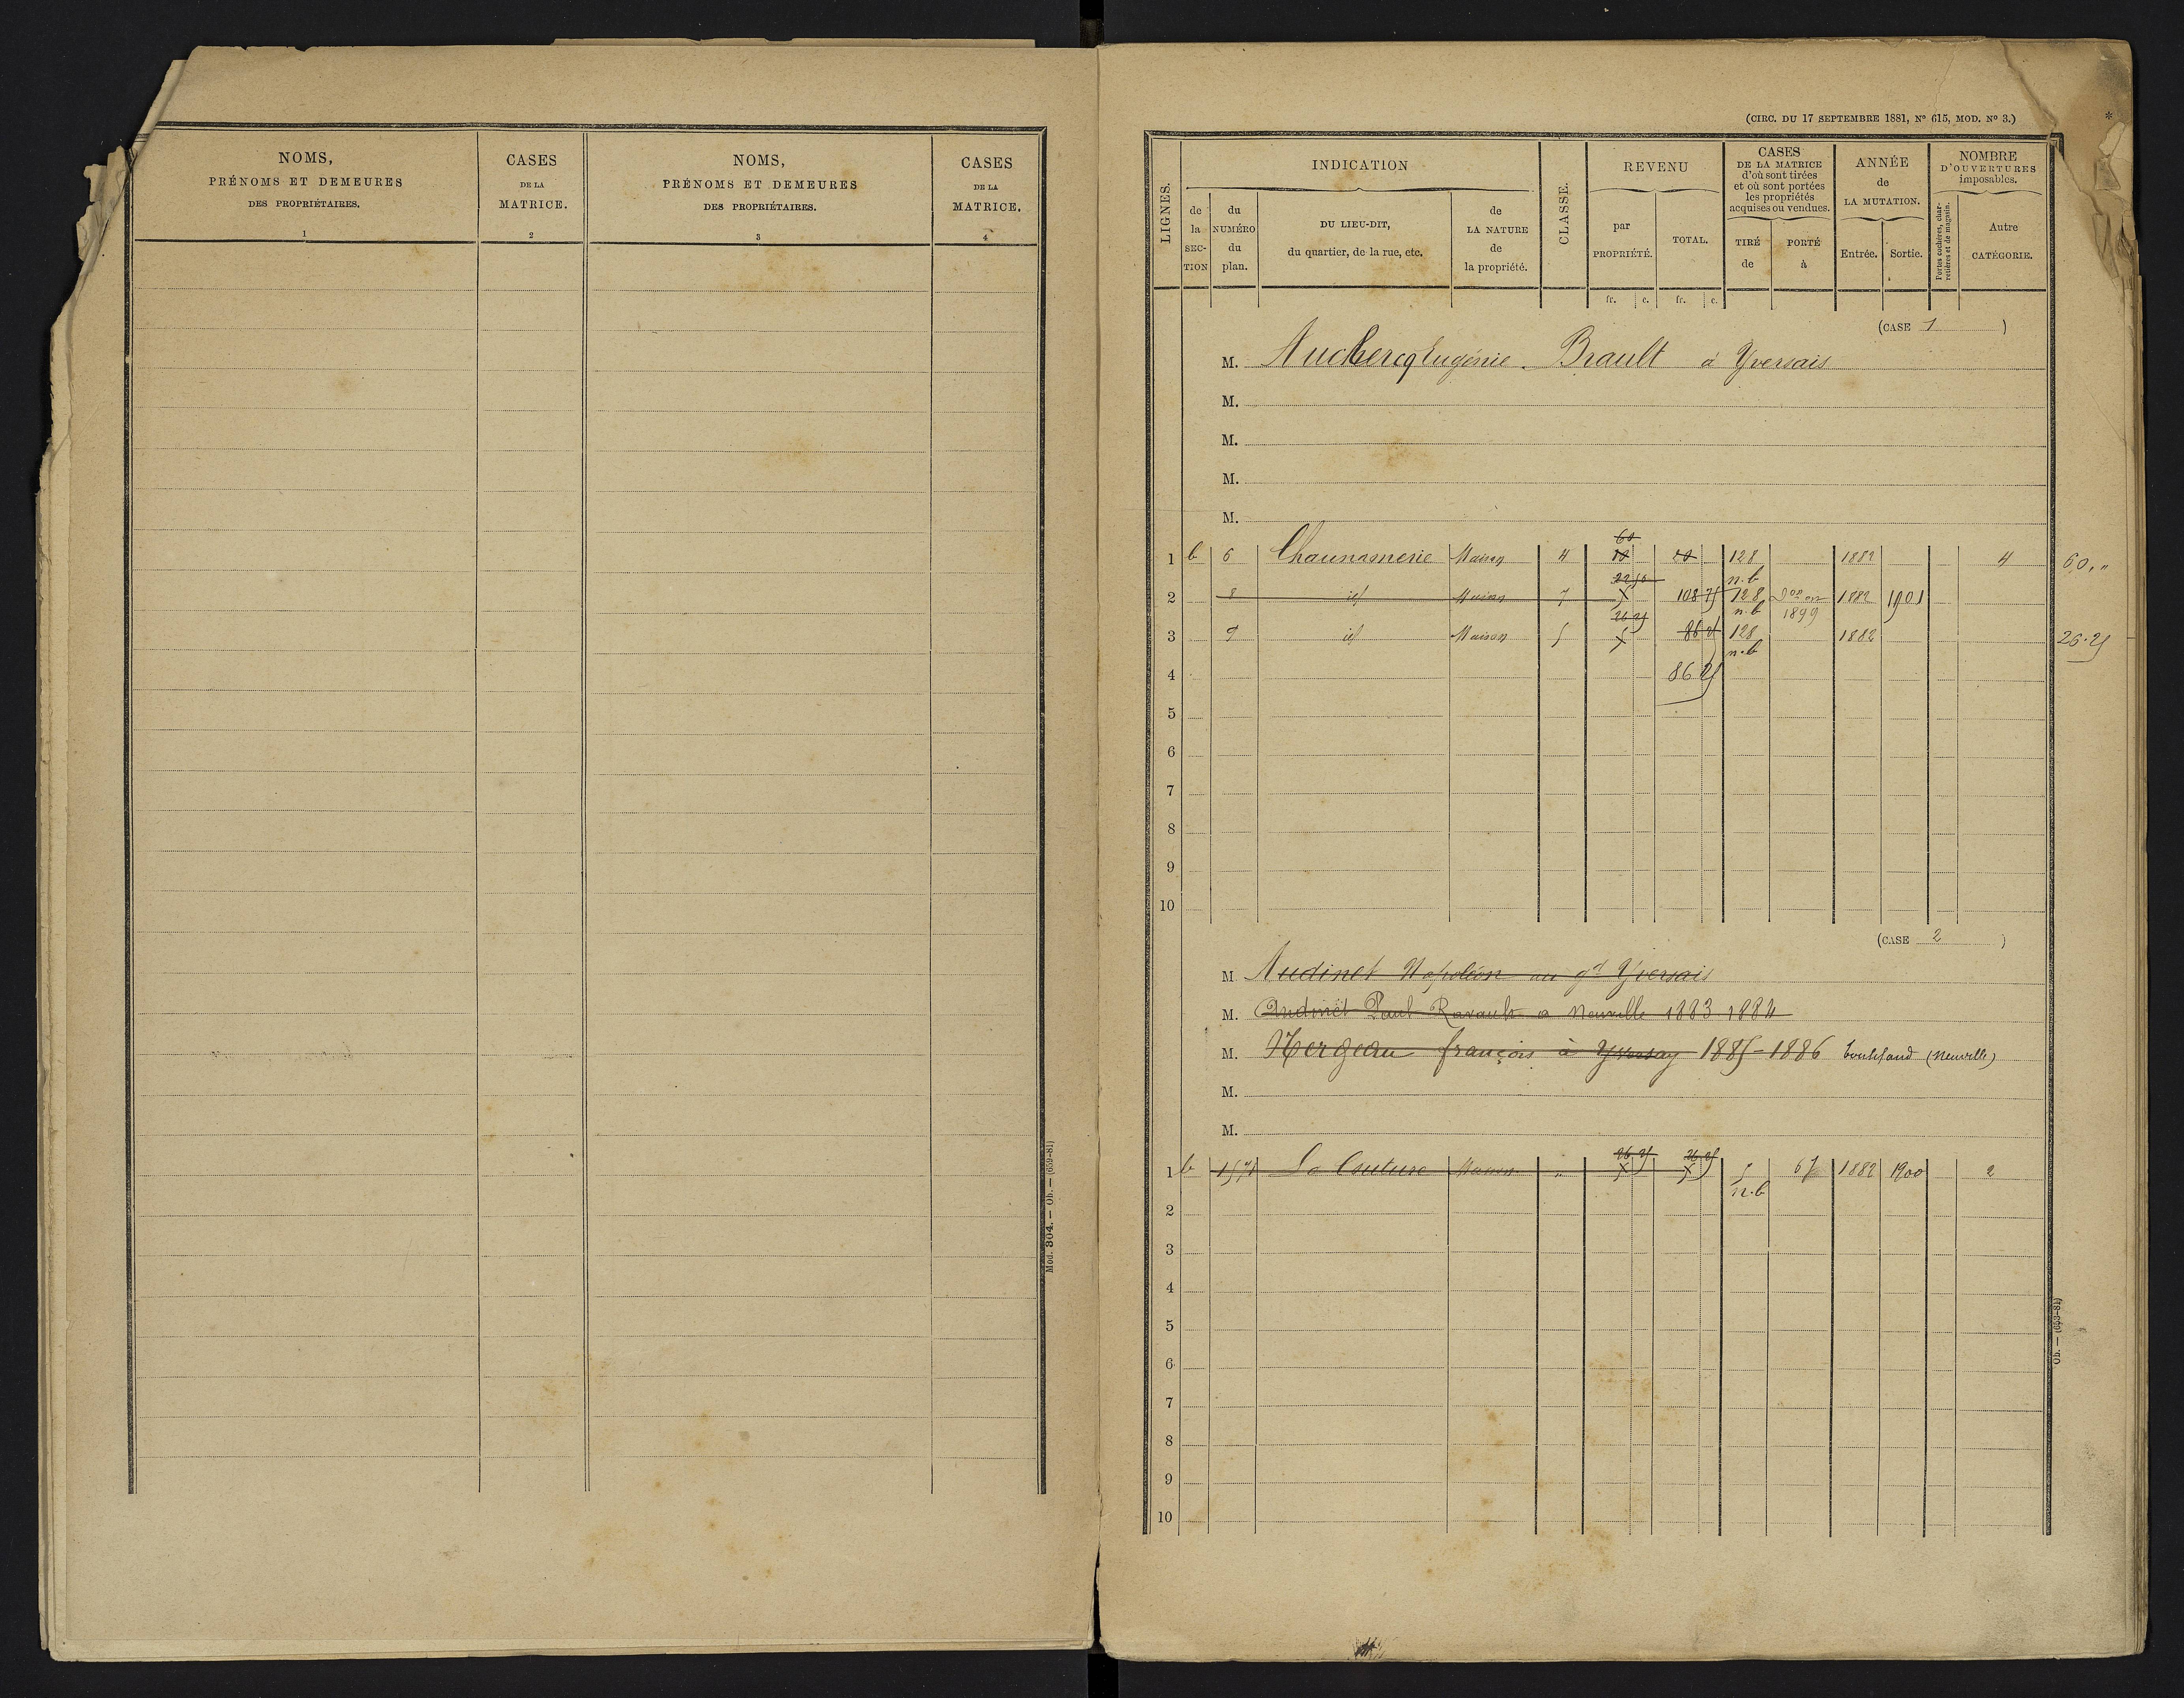 NOMS,
PRÉNOMS ET DEMEURES
DES PROPRIÉTAIRES.
1
CASES
DE LA
MATRICE.
2
NOMS,
PRÉNOMS ET DEMEURES
DES PROPRIÉTAIRES.
3
CASES
DE LA
MATRICE.
4
Mod. 304. — Ob. — (659-81)
(CIRC. DU 17 SEPTEMBRE 1881, No 615, MOD. No 3.)
LIGNES.
INDICATION
de la SECTION
du NUMÉRO du plan.
DU LIEU-DIT,
du quartier, de la rue, etc.
de LA NATURE de la propriété.
CLASSE.
REVENU
par PROPRIÉTÉ.
TOTAL.
CASES
DE LA MATRICE
d'où sont tirées
et où sont portées
les propriétés
acquises ou vendues.
TIRÉ de
PORTÉ à
ANNÉE
de
LA MUTATION.
Entrée. Sortie.
NOMBRE
D'OUVERTURES
imposables.
Portes cochères, charretières et de magasin.
Autre CATÉGORIE.
fr. c. fr. c.
(CASE 1)
M. Eugénie Brault à Yversais
M.
M.
M.
M.
60
1 b 6 Maison 4 128 1882 4 60 "
22 50 n.b
2 8 id Maison 7 108 75 128 1882 1901
26 25 n.b 1899
3 9 id Maison 5 86 25 128 1882 26.25
n.b
4 86 25
5
6
7
8
9
10
(CASE 2)
M Audinet Napoléon au gd Yversais
M. Audinet Paul Ravault a Neuville 1883 1884
M. Hergeau françois à Yversay 1885-1886 (Neuville)
M.
M.
26 25 26 25
1 b La Couture Maison " 5 67 1882 1900 2
n.b
2
3
4
5
6
7
8
9
10
Ob. — (653-81)